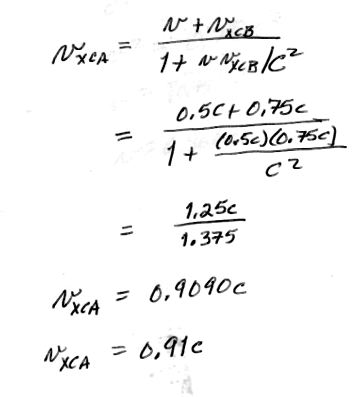 v_xCA = (v + v_xCB) / (1 + v v_xCB/C²)
= (0.5C + 0.75C) / (1 + (0.5C)(0.75C)/C²)
= 1.25C / 1.375
v_xCA = 0.9090C
v_xCA = 0.91C